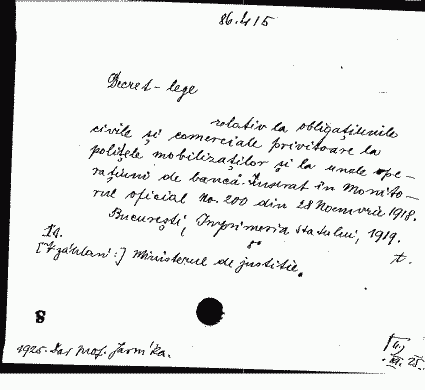 86.415
Decret-lege
relativ la obligațiunile
civile și comerciale privitoare la
polițele mobilizaților și la unele ope-
rațiuni de bancă. Inserat in Monito-
rul oficial No. 200 din 28 Noemvrie 1918.
București, Imprimeria statului, 1919.
8°
t.
[Izdáni:] Ministerul de justitie.
8
1925. Dar Prof. Jarník a.